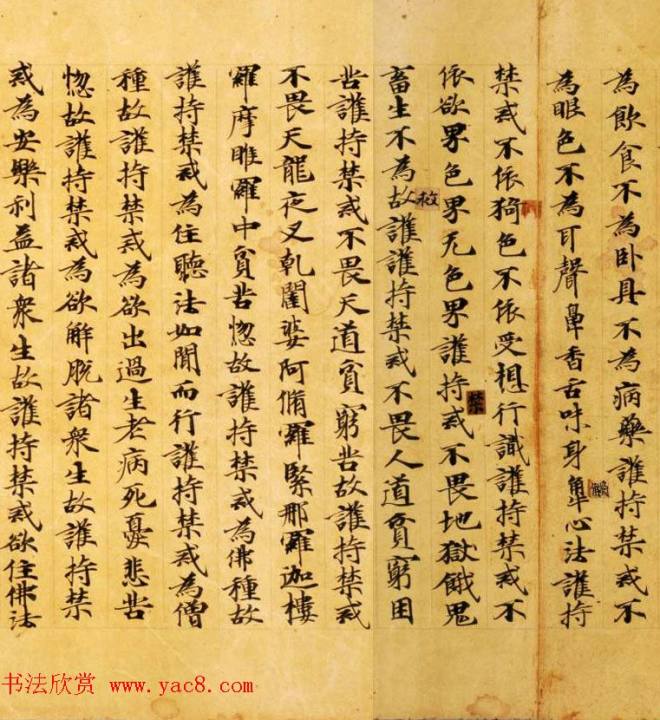 為飲食不為卧具不為病藥護持禁戒不
為眼色不為耳聲鼻香舌味身觸心法護持
禁戒不依猗色不依受想行識護持禁戒不
依欲界色界无色界護持禁戒不畏地獄餓鬼
畜生不為故護護持禁戒不畏人道貧窮困
苦護持禁戒不畏天道貧窮苦故護持禁戒
不畏天龍夜叉乹闥婆阿脩羅緊那羅迦樓
羅摩睺羅中貧苦惚故護持禁戒為佛種故
護持禁戒為住聽法如聞而行護持禁戒為僧
種故護持禁戒為欲出過生老病死憂悲苦
惚故護持禁戒為欲解脫諸衆生故護持禁
戒為安樂利益諸衆生故護持禁戒欲住佛法
书法欣赏 www.yac8.com